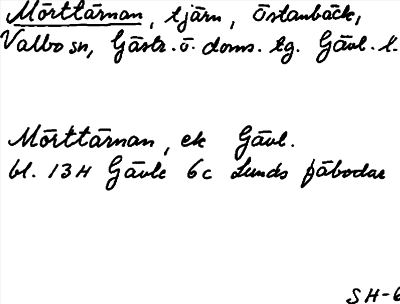 Mörttärnan, tjärn, Östanbäck,
Valbo sn, Gästr. ö. doms. tg. Gävl. l.
Mörttärnan, ek Gävl.
bl. 13H Gävle 6c Lunds fäbodar
SH-6